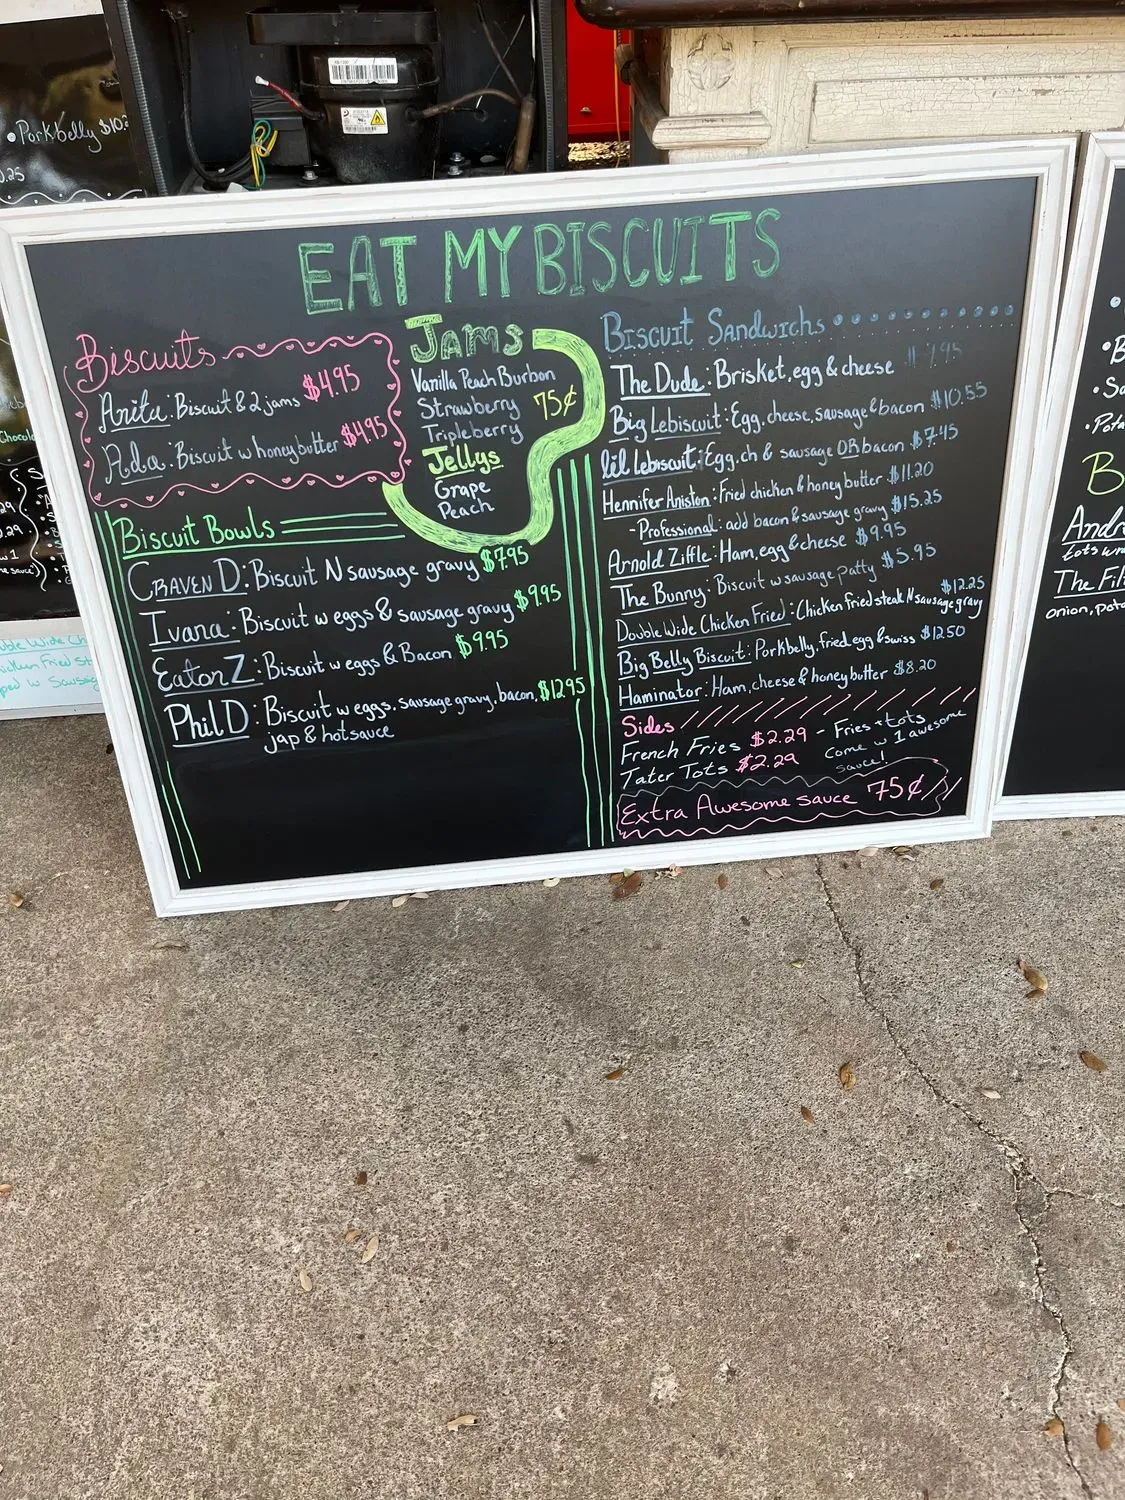 •Porkbelly $10.
EAT MY BISCUITS
Biscuits
Anita: Biscuit & 2 jams $4.95
Ada: Biscuit w honeybutter $4.95
JAMS
Vanilla Peach Burbon
Strawberry 75¢
Tripleberry
Jellys
Grape
Peach
Biscuit Bowls
CRAVEN D: Biscuit N sausage gravy $7.95
Ivana: Biscuit w eggs & sausage gravy $9.95
Eaton Z: Biscuit w eggs & Bacon $9.95
Phil D: Biscuit w eggs, sausage gravy, bacon, $12.95
jap & hotsauce
Biscuit Sandwichs
The Dude: Brisket, egg & cheese
Big Lebiscuit: Egg, cheese, sausage & bacon $10.55
lil Lebiscuit: Egg, ch & sausage OR bacon $7.45
Hennifer Aniston: Fried chicken & honey butter $11.20
-Professional: add bacon & sausage gravy $15.25
Arnold Ziffle: Ham, egg & cheese $9.95
The Bunny: Biscuit w sausage patty $5.95
Double Wide Chicken Fried: Chicken fried steak N sausage gravy $12.25
Big Belly Biscuit: Porkbelly, fried egg & swiss $12.50
Haminator: Ham, cheese & honey butter $8.20
Sides
French Fries $2.29 - Fries + tots
Tater Tots $2.29 come w 1 awesome
sauce!
Extra Awesome sauce 75¢
Andr
The Fil
onion, pota